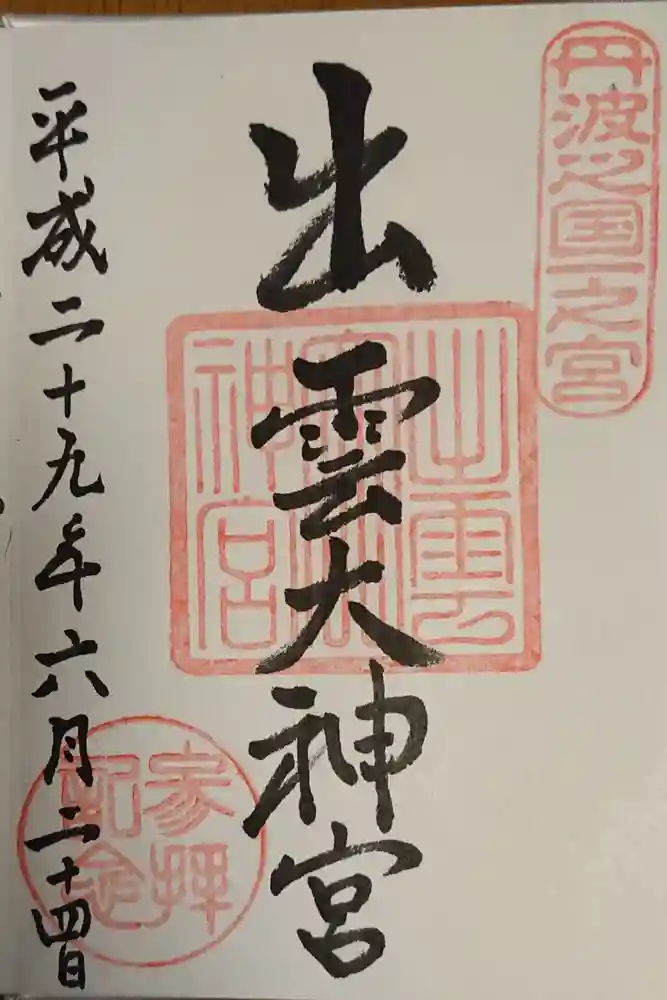 丹波之国一之宮
出雲大神宮
出雲
神宮
平成二十九年六月二十四日
参拝
記念